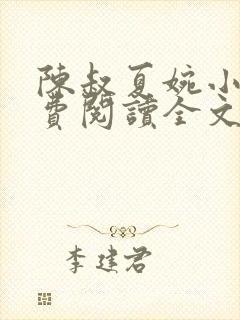 陳叔夏婉小
費閱讀全文
李建君